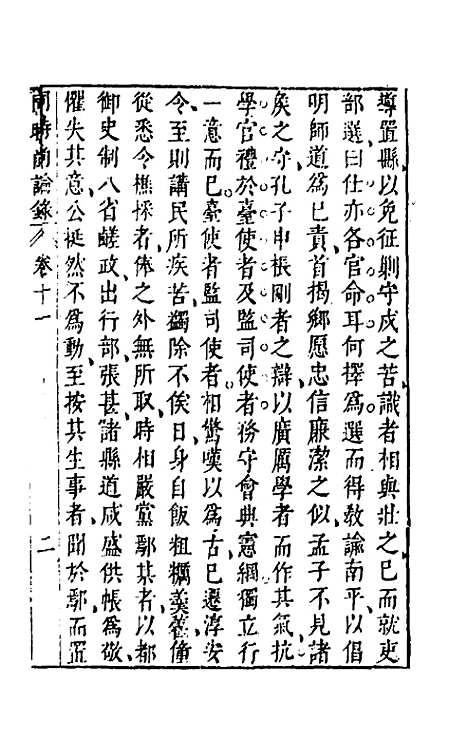 導置縣以免征剿守戍之苦識者相與壯之已而就吏
部選曰仕亦各官命耳何擇為選而得教諭南平以倡
明師道為已責首揭鄉愿忠信廉潔之似孟子不見諸
矦之守孔子申棖剛者之辯以廣厲學者而作其氣抗
學官禮於臺使者及監司使者務守會典憲綱獨立行
一意而已臺使者監司使者相驚嘆以為古已遷淳安
令至則講民所疾苦蠲除不俟日身自飯粗糲羹藿僮
從悉令樵採者俸之外無所取時相嚴黨鄢某者以都
御史制八省鹺政出行部張甚諸縣道咸盛供帳為敬
懼失其意公挺然不為動至按其生事者聞於鄢而置
南論錄 卷十一 二